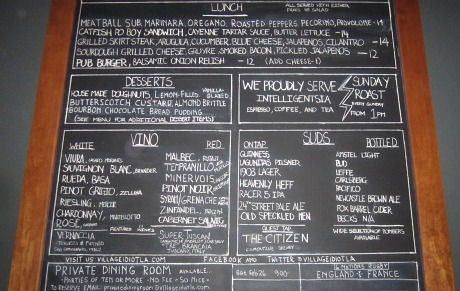 LUNCH
ALL SERVED WITH EITHER
FRIES OR SALAD
MEATBALL SUB, MARINARA, OREGANO, ROASTED PEPPERS, PECORINO, PROVOLONE - 14
CATFISH PO'BOY SANDWICH, CAYENNE TARTAR SAUCE, BUTTER LETTUCE - 14
GRILLED SKIRT STEAK, ARUGULA, CUCUMBER, BLUE CHEESE, JALAPENOS, CILANTRO - 14
SOURDOUGH GRILLED CHEESE, GRUYRE, SMOKED BACON, PICKLED JALAPENOS - 12
PUB BURGER, BALSAMIC ONION RELISH - 12 (ADD CHEESE-1)
DESSERTS
HOUSE MADE DOUGHNUTS, LEMON-FILLED, VANILLA-GLAZED
BUTTERSCOTCH CUSTARD, ALMOND BRITTLE
BOURBON CHOCOLATE BREAD PUDDING
(SEE MENU FOR ADDITIONAL DESSERT ITEMS)
WE PROUDLY SERVE
INTELLIGENTSIA
ESPRESSO, COFFEE, AND TEA
SUNDAY
ROAST
EVERY SUNDAY
FROM 1PM
VINO
WHITE
VIURA,
SAUVIGNON BLANC,
RUEDA, BASA
PINOT GRIGIO,
RIESLING,
CHARDONNAY,
ROSE,
VERNACCIA
RED
MALBEC,
TEMPRANILLO
MINERVOIS
PINOT NOIR
SYRAH/GRENACHE
ZINFANDEL,
CABERNET SAUVIG
SUPER TUSCAN
SUDS
ON TAP
GUINNESS
LAGUNITAS PILSNER
1903 LAGER
HEAVENLY HEFF
RACER 5 IPA
24TH STREET PALE ALE
OLD SPECKLED MEN
GUEST TAP
THE CITIZEN
BOTTLED
AMSTEL LIGHT
BUD
LEFFE
CARLSBERG
PACIFICO
NEWCASTLE BROWN ALE
FOX BARREL CIDER
BECKS N/A
WIDE SELECTION OF BOMBERS
AVAILABLE
VISIT US VILLAGEIDIOTLA.COM FACEBOOK AND TWITTER @VILLAGEIDIOTLA
PRIVATE DINING ROOM AVAILABLE
- PARTIES OF TEN OR MORE - NO FEE - SO NICE -
TO RESERVE EMAIL: privatedining@villageidiotla.com
Sat. Feb 26 9:00
6 NATIONS RUGBY
ENGLAND v FRANCE